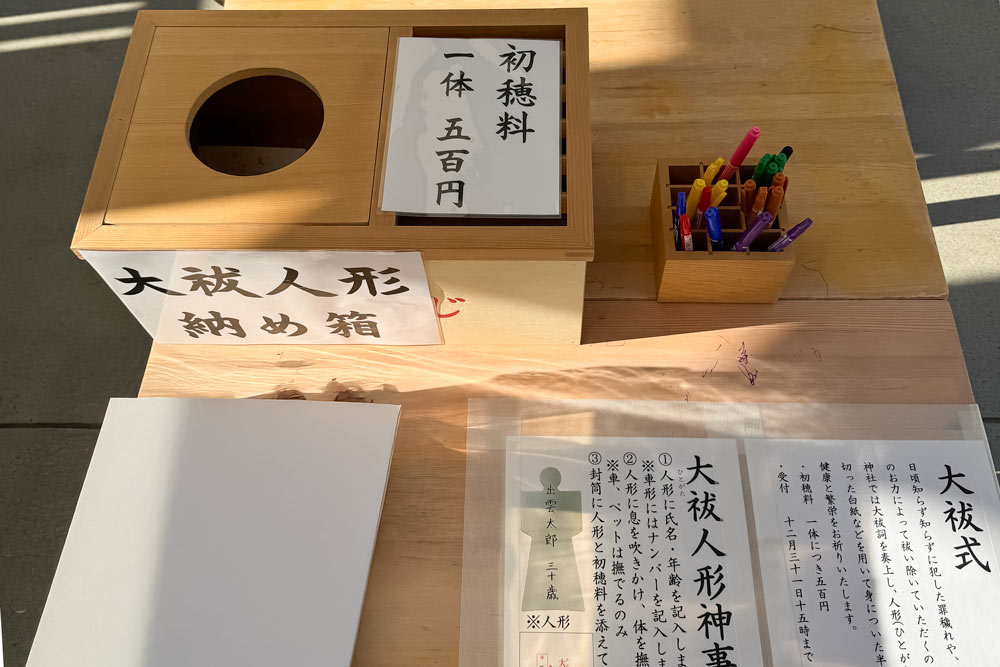 初穂料
一体 五百円
大祓人形
納め箱
じ
大祓式
日頃知らず知らずに犯した罪穢れや、
のお力によって祓い除いていただくの
神社では大祓詞を奏上し、人形(ひとが
切った白紙などを用いて身についた半
健康と繁栄をお祈りいたします。
・初穂料 一体につき五百円
・受付 十二月三十一日十五時まで
大祓人形神事
ひとがた
①人形に氏名・年齢を記入しま
※車形にはナンバーを記入しま
②人形に息を吹きかけ、体を撫
※車、ペットは撫でるのみ
③封筒に人形と初穂料を添えて
出雲太郎 三十歳
※人形